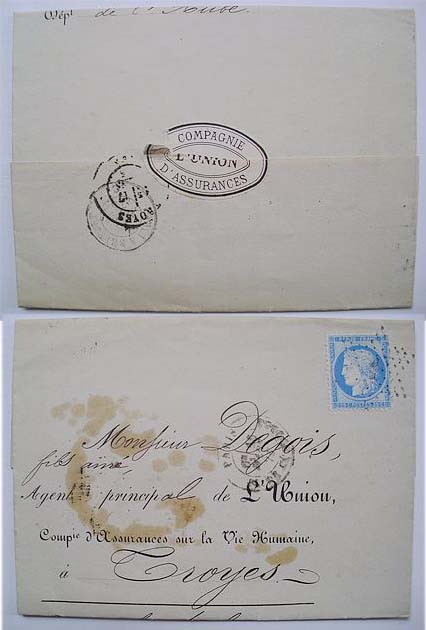 Dépt de l'Aube.
COMPAGNIE
L'UNION
D'ASSURANCES
TROYES
Monsieur Degois,
fils aîné,
Agent principal de L'Union,
Compie d'Assurances sur la Vie Humaine,
à Troyes